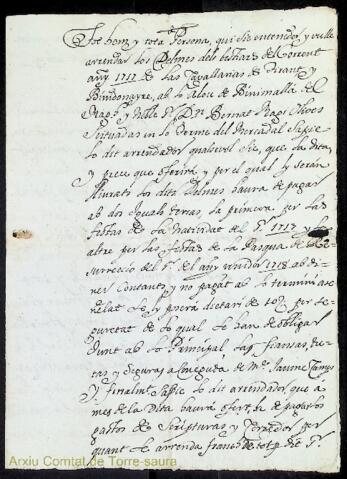 Tot hom y tota Persona, qui sie entendor, y vulle
arrendar los Delmes del bestiar del Corrent
any 1717 de las Cavallarias de
Binidonayre, ab lo Aloe de Binimallà del
Magch y Noble Sr Dn Bernat Roger Olives
Situadas en lo terme del Mercadal Sapie
lo dit arrendador qualsevol sie, que la dita,
y preu que oferirà, y per el qual ly seràn
lliurats los dits Delmes haurà de pagar
ab dos iguals terças, la primera per las
festas de la Natividat del Sr 1717 y la
altre per las festas de la Pasqua de Re-
surrecció del Sr del any vinidor 1718 ab di-
ner Contants, y no pagàt ab lo termini as-
senyalat se ly posarà dietari de 10 per se-
guretat de lo qual lo han de obligar
Junt ab lo Principal, las fiansas, de-
tas y seguras a coneguda de Mo Jaume
Y finalmt Sapie lo dit arrendador que a
mes de la Dita haurà ofert, ha de pagar los
gastos de Scripturas, y Corredor per
quant se arrenda franch de tot
Arxiu Comtal de Torre-saura